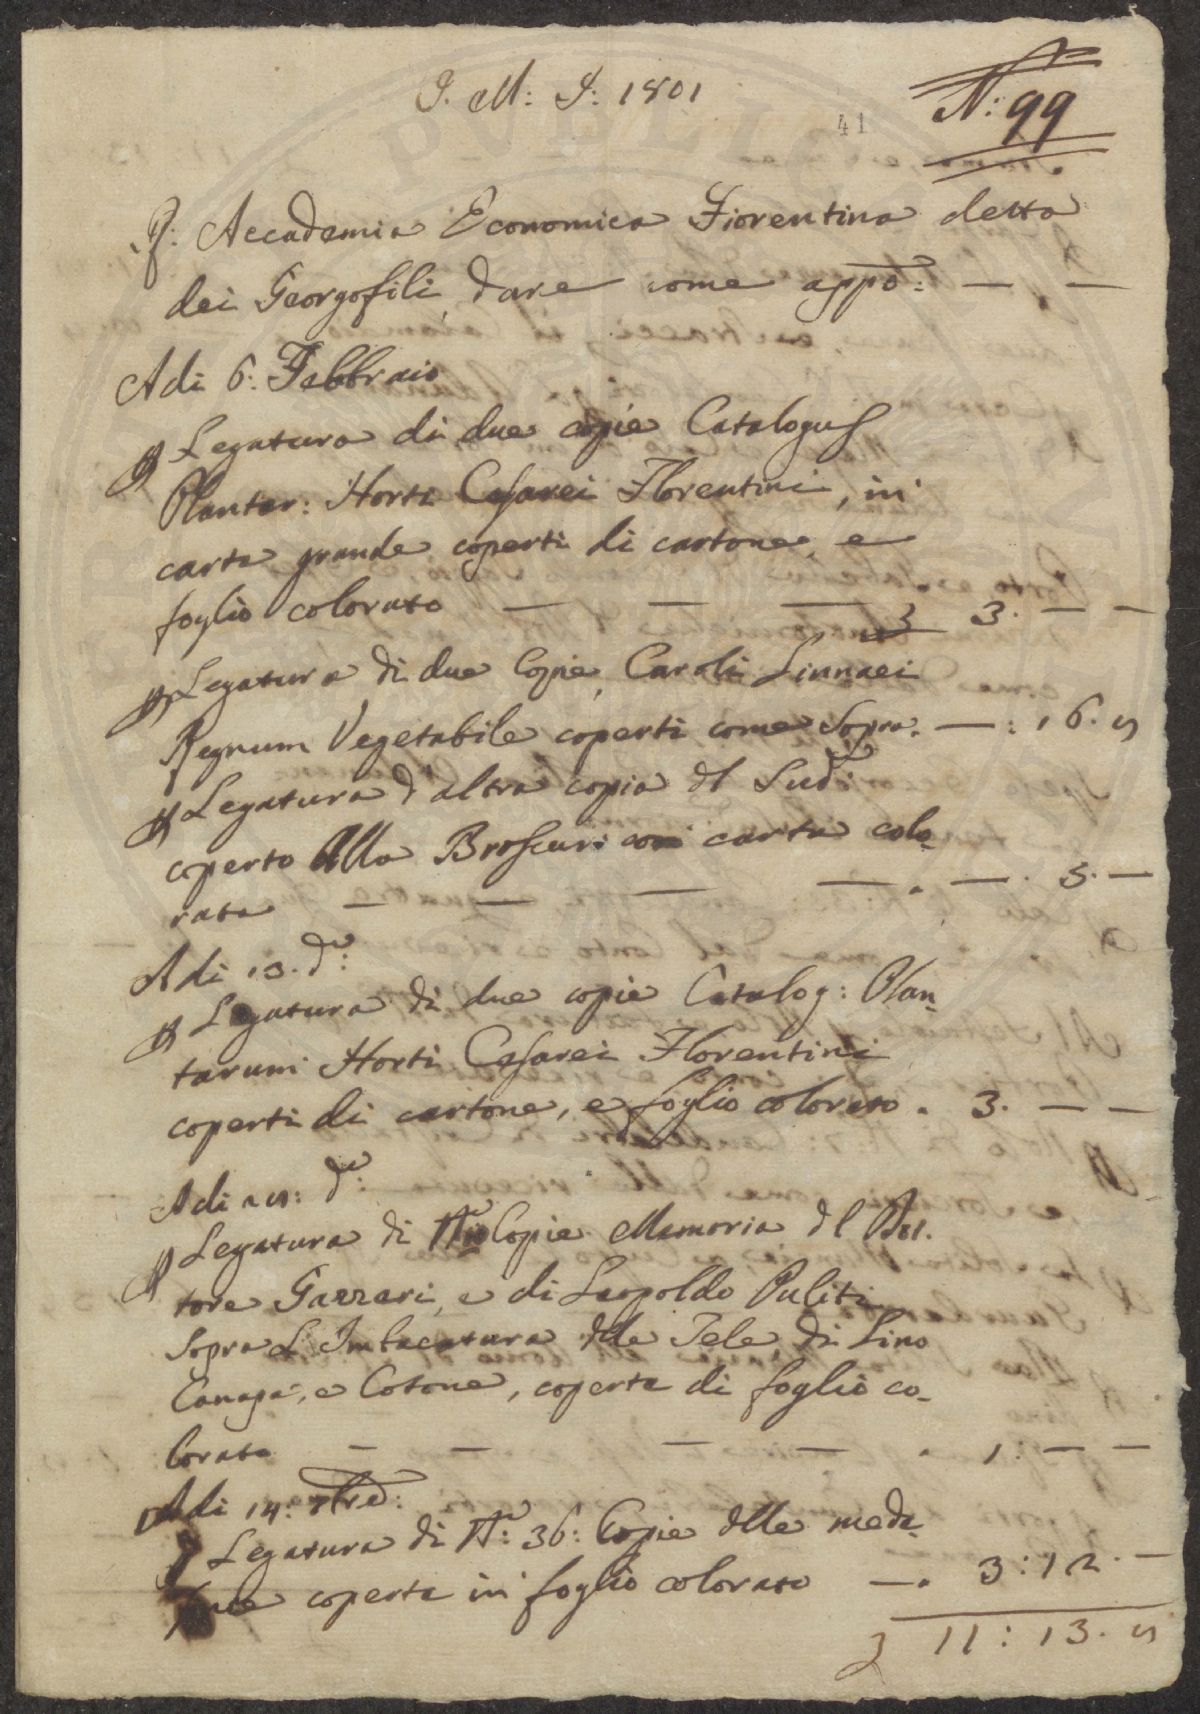 J. M: J: 1801
N: 99
41
R: Accademia Economica Fiorentina detta
dei Georgofili dare come appo: — —
Adi 6: Febbraio
Legatura di due copie Catalogus
Plantar: Horti Cesarei Florentini, in
carta grande coperti di cartone, e
foglio colorato — — — 3. — —
Legatura di due Copie, Caroli Linnaei
Regnum Vegetabile coperti come Sopra. —: 16. 4
Legatura d'altra copia dl Sud:
coperto alla Broscur: con carta colo-
rata — — — —. —. 5. —
Adi 13. do:
Legatura di due copie Catalog: Plan-
tarum Horti Cesarei Florentini
coperti di cartone, e foglio colorato. 3. — —
Adi do:
Legatura di No Copie Memoria dl Dot-
tore Gazzeri, e di Leopoldo Puliti
Sopra L'Imbacatura dlle Tele di Lino
Canapa, e Cotone, coperte di foglio co-
lorato — — — —. 1: — —
Adi 14: 7bre:
Legatura di No: 36: Copie dlle mede-
sime coperte in foglio colorato —. 3: 12. —
11: 13. 4